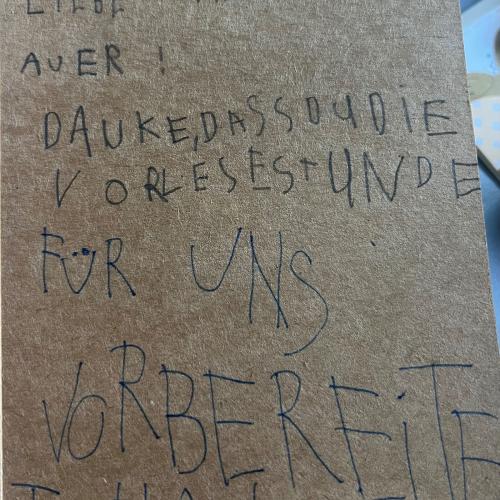 LIEBE
AUER !
DAUKE,DASS DU DIE
VORLESESTUNDE
FÜR UNS
VORBEREITE